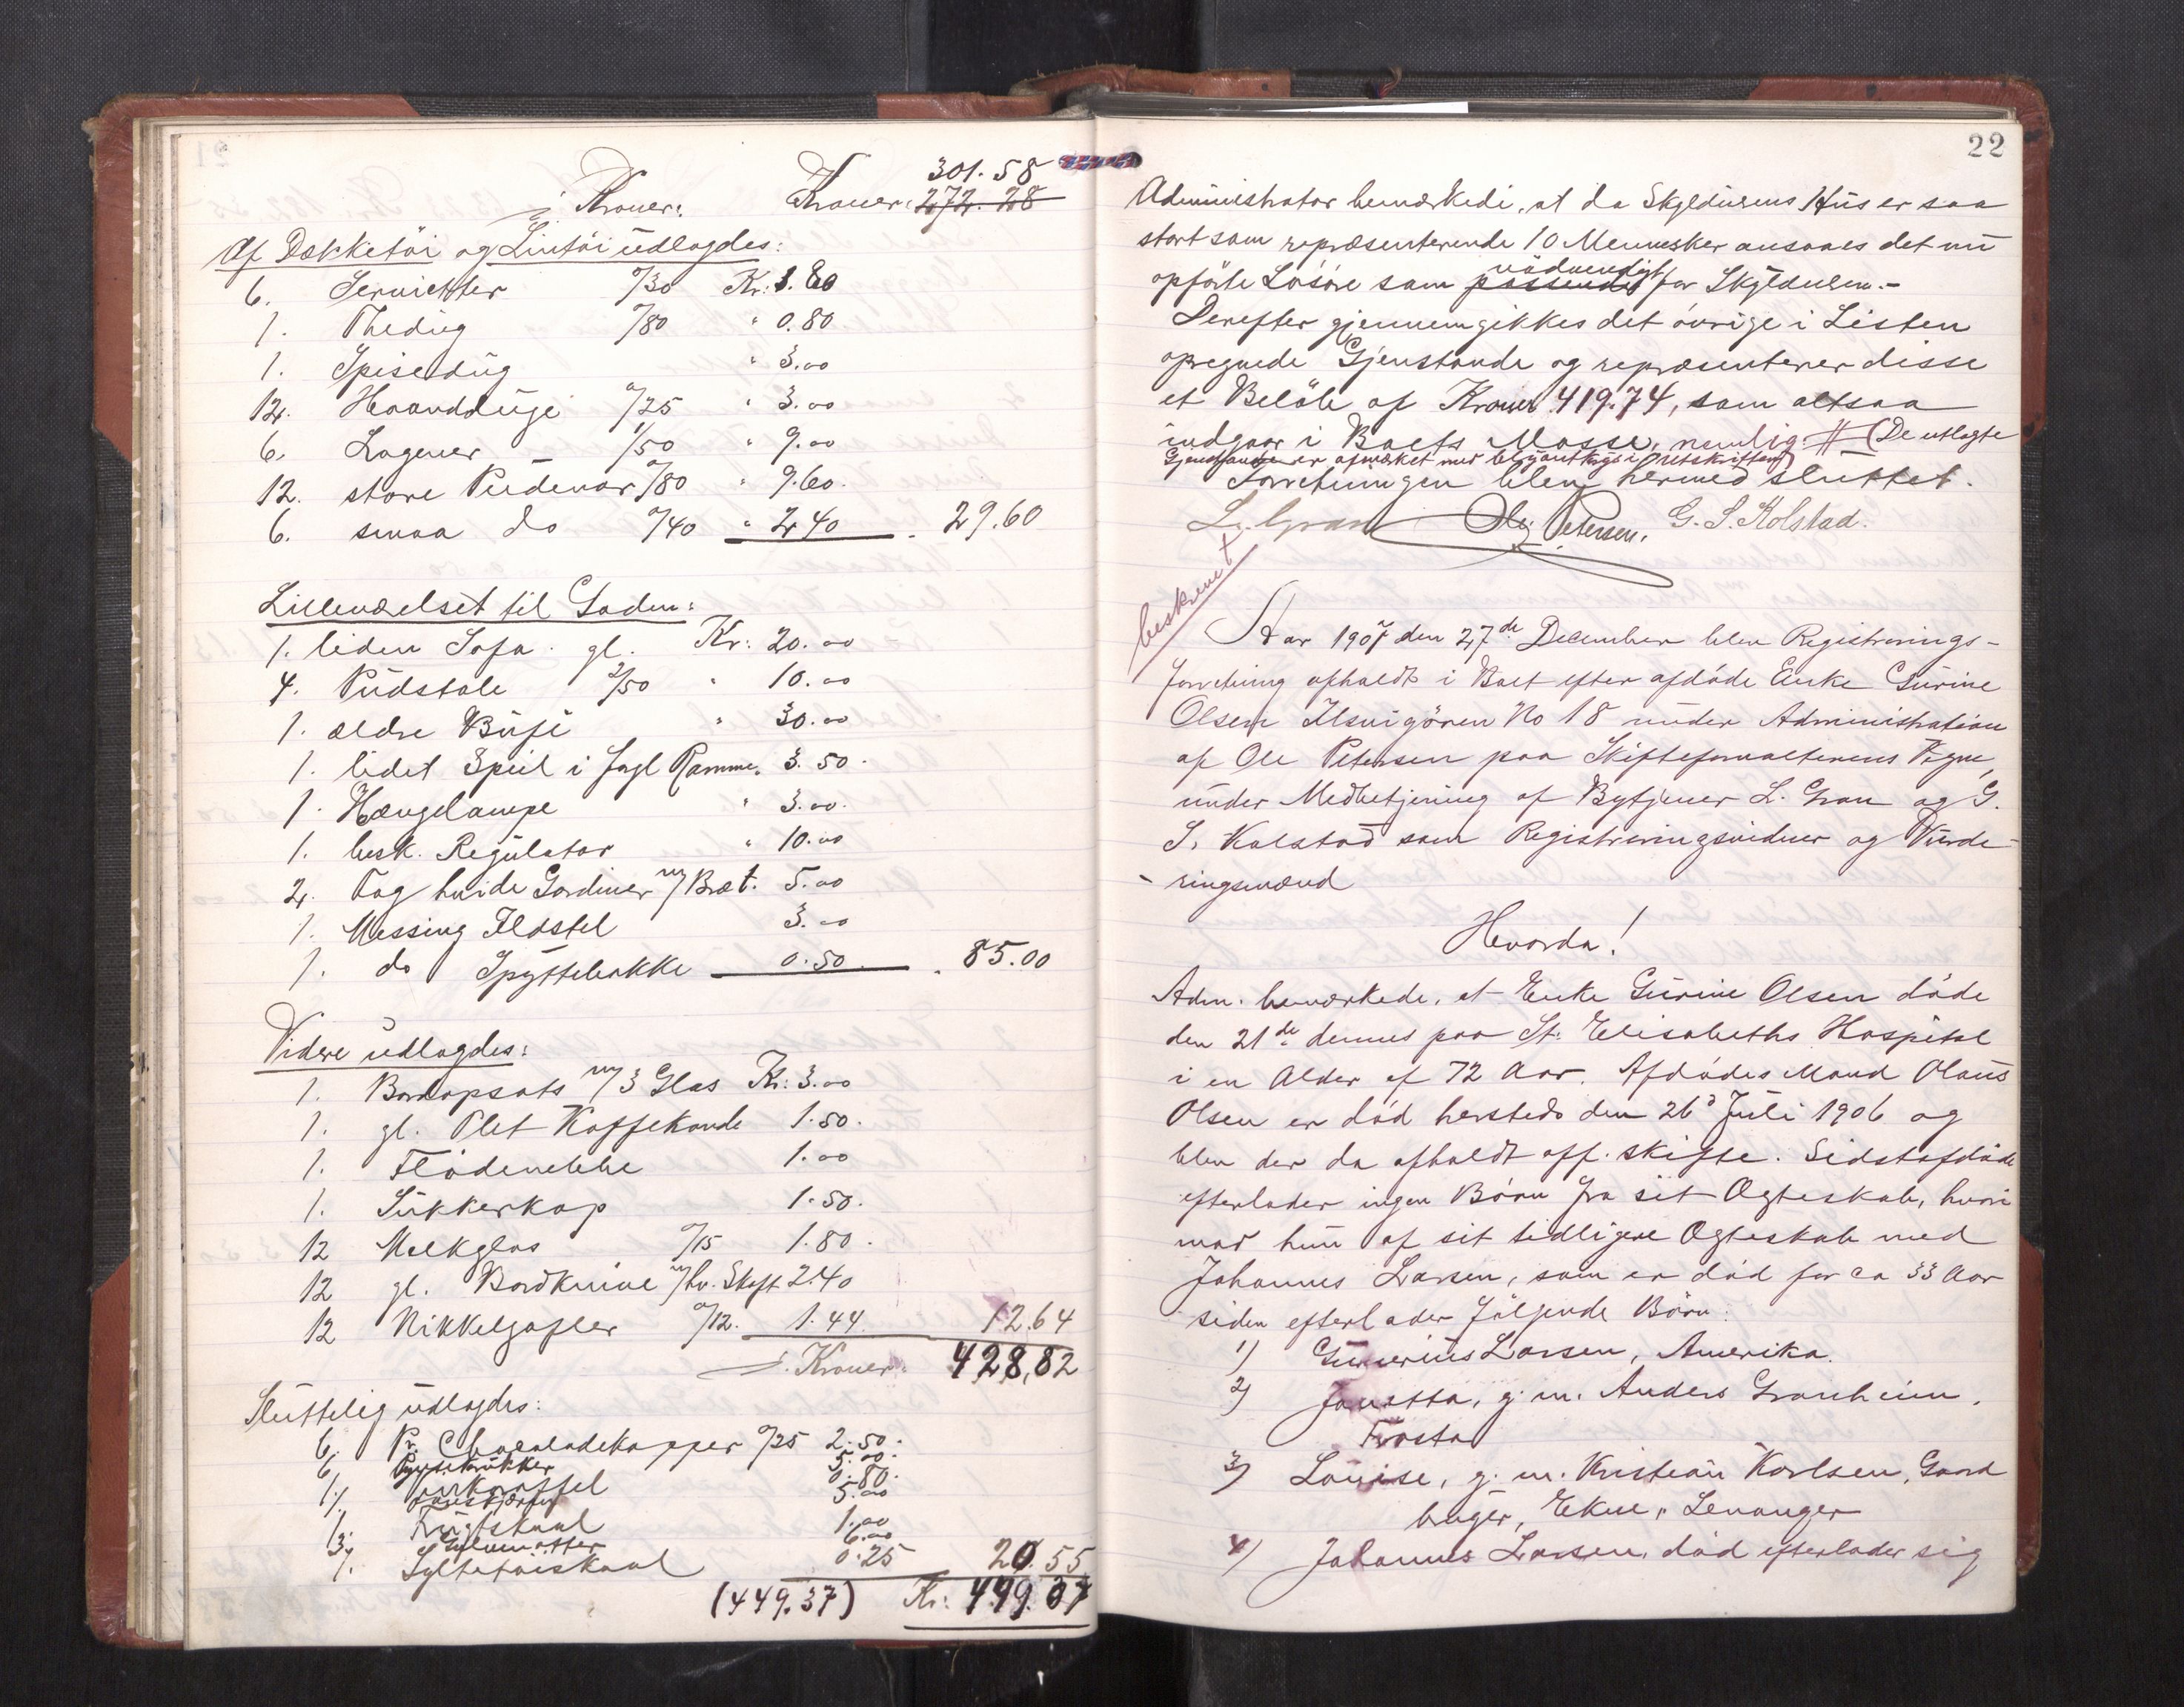 301.58
Kroner: Kroner: 272.28
Af Dækketöi og Lintöi udlagdes:
6. Servietter a/30 Kr: 1.80
1. Thedug /80 " 0.80
1. Spisedug " 3.00
12. Haandduge a/25 " 3.00
6. Lagener 1/50 " 9.00
12. store Pudevar a/80 " 9.60
6. smaa do a/40 " 2.40 29.60
Lilleværelset til Gaden:
1. liden Sofa gl. Kr: 20.00
4. Pudstole 2/50 " 10.00
1. ældre Buffé " 30.00
1. lidet Speil i forgl Ramme. 3.50
1. Hængelampe " 3.00
1. besk. Regulator " 10.00
2. Fag hvide Gardiner m/ Bræt. 5.00
1. Messing Ildstel 3.00
1. do Spyttebakke 0.50 85.00
Videre udlagdes:
1. Bordopsats m/3 Glas Kr: 3.00
1. gl. Plet Kaffekande 1.50
1. Flödemebbe 1.00
1. Sukkerkop 1.50
12 Melkglas a/15 1.80
12 gl. Bordknive m/hv. Skaft 2.40
12 Nikkelgafler a/12. 1.44 12.64
Kroner: 428,82
Sluttelig udlagdes:
6. Pr. Chocoladekopper a/25 2.50
6. krukker 5.00
1. 0.80
1. 5.00
1. Frugtskaal 1.00
3. Gulvmatter 6.00
1. Syltetöiskaal 0.25 20.55
(449.37) Kr: 449.07
22
Administrator bemærkede, at da Skyldnerens Hus er saa
stort som repræsenterende 10 Mennesker ansaaes det nu
nödvendigt
opförte Lösöre som passende for Skyldneren.-
Derefter gjennemgikkes det övrige i Listen
opregnede Gjenstande og repræsenterer disse
et Belöb af Kroner 419.74, som altsaa
indgaar i Boets Masse, nemlig: # (De utlagte
Gjenstande er afmærket med blyantkrys i Utskriften)
Forretningen blev hermed sluttet.
L. Gran Ole Petersen. G. S. Kolstad.
beskrevet
Aar 1907 den 27de December blev Registrerings-
forretning afholdt i Boet efter afdöde Enke Gurine
Olsen Ilsvigören No 18 under Administration
af Ole Petersen paa Skifteforvalterens Vegne,
under Medbetjening af Bytjener L. Gran og G.
S. Kolstad som Registreringsvidner og Vurde-
- ringsmænd
Hvorda!
Adm. bemærkede, at Enke Gurine Olsen döde
den 21de dennes paa St. Elisabeths Hospital
i en Alder af 72 Aar. Afdödes Mand Olaus
Olsen er död hersteds den 26d Juli 1906 og
blev der da afholdt off. skifte. Sidstafdöde
efterlader ingen Börn fra sit Ægteskab, hvori
mod hun af sit tidligere Ægteskab med
Johannes Larsen, som er död for ca 33 Aar
siden efterlader fölgende Börn:
1) Gunerius Larsen, Amerika.
2) Jonetta, g. m. Anders Granheim,
Frosta
3) Louise, g. m. Kristian Karlsen, Gaard
bruger, Ekne, Levanger
4) Johannes Larsen, död efterlader sig